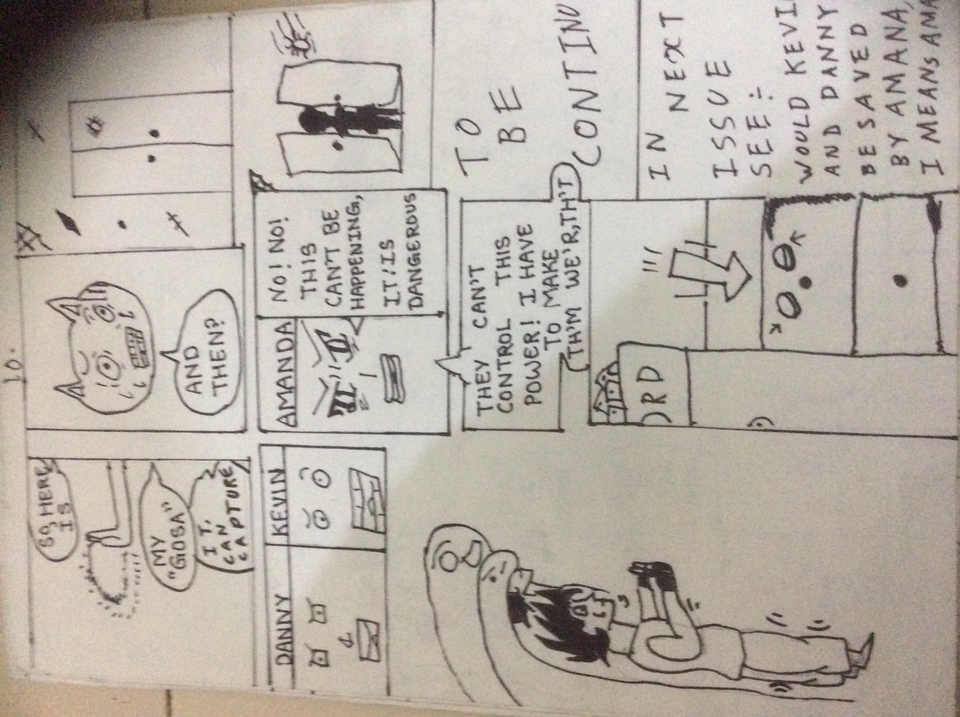 10.
SO, HERE
IS
MY
"GOSA"
IT,
CAN
CAPTURE
AND
THEN?
DANNY
KEVIN
AMANDA
NO! NO!
THIS
CAN'T BE
HAPPENING,
IT!IS
DANGEROUS
THEY CAN'T
CONTROL THIS
POWER! I HAVE
TO MAKE
TH'M WE'R,TH'T
TO
BE
CONTINU
RD
IN NEXT
ISSUE
SEE:
WOULD KEVI
AND DANNY
BE SAVED
BY AMANA,
I MEANS AMA